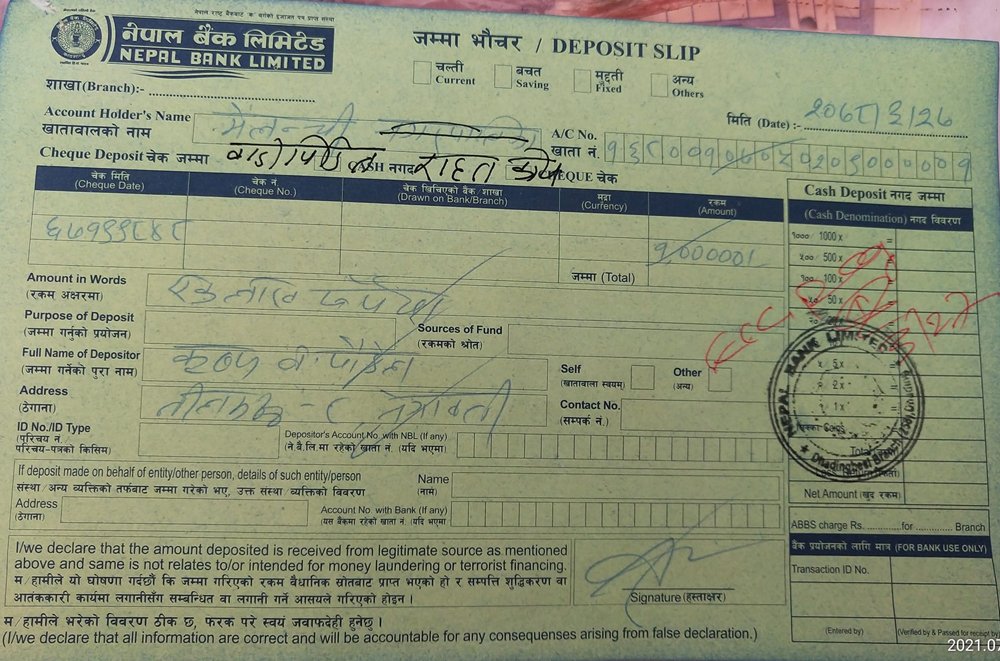 नेपाल राष्ट्र बैंकबाट 'क' वर्गको इजाजत पत्र प्राप्त संस्था
नेपाल बैंक लिमिटेड
NEPAL BANK LIMITED
जम्मा भौचर / DEPOSIT SLIP
चल्ती
Current
बचत
Saving
मुद्दती
Fixed
अन्य
Others
शाखा(Branch):-
मिति (Date) :- २०७८/३/२७
Account Holder's Name
खातावालाको नाम
A/C No.
खाता नं.
Cheque Deposit चेक जम्मा
CASH नगद
राहत कोष
CHEQUE चेक
चेक मिति
(Cheque Date)
चेक नं
(Cheque No.)
चेक खिचिएको बैंक/शाखा
(Drawn on Bank/Branch)
मुद्रा
(Currency)
रकम
(Amount)
जम्मा (Total)
Cash Deposit नगद जम्मा
(Cash Denomination) नगद विवरण
१००० 1000 x
५०० 500 x
१०० 100 x
५० 50 x
5x
2x
1x
Net Amount (खुद रकम)
Amount in Words
(रकम अक्षरमा)
एक लाख रुपैया
Purpose of Deposit
(जम्मा गर्नुको प्रयोजन)
Sources of Fund
(रकमको श्रोत)
Full Name of Depositor
(जम्मा गर्नेको पुरा नाम)
Self
(खातावाला स्वयम्)
Other
(अन्य)
Address
(ठेगाना)
Contact No.
(सम्पर्क नं.)
ID No./ID Type
(परिचय नं.
परिचय-पत्रको किसिम)
Depositor's Account No. with NBL (If any)
(ने.बै.लि.मा रहेको खाता नं. (यदि भएमा)
If deposit made on behalf of entity/other person, details of such entity/person
संस्था/अन्य व्यक्तिको तर्फबाट जम्मा गरेको भए, उक्त संस्था/व्यक्तिको विवरण
Name
(नाम)
Address
(ठेगाना)
Account No. with Bank (If any)
(यस बैंकमा रहेको खाता नं. (यदि भएमा
NEPAL BANK LIMITED
Dhadingbesi Branch
ABBS charge Rs. ............for .......... Branch
बैंक प्रयोजनको लागि मात्र (FOR BANK USE ONLY)
Transaction ID No.
I/we declare that the amount deposited is received from legitimate source as mentioned
above and same is not relates to/or intended for money laundering or terrorist financing.
म/हामीले यो घोषणा गर्दछौं कि जम्मा गरिएको रकम वैधानिक स्रोतबाट प्राप्त भएको हो र सम्पत्ति शुद्धिकरण वा
आतंककारी कार्यमा लगानीसँग सम्बन्धित वा लगानी गर्ने आसयले गरिएको होइन ।
Signature (हस्ताक्षर)
म/हामीले भरेको विवरण ठीक छ, फरक परे स्वयं जवाफदेही हुनेछु ।
(I/we declare that all information are correct and will be accountable for any consequences arising from false declaration.)
(Entered by)
(Verified by & Passed for receipt by
2021.07